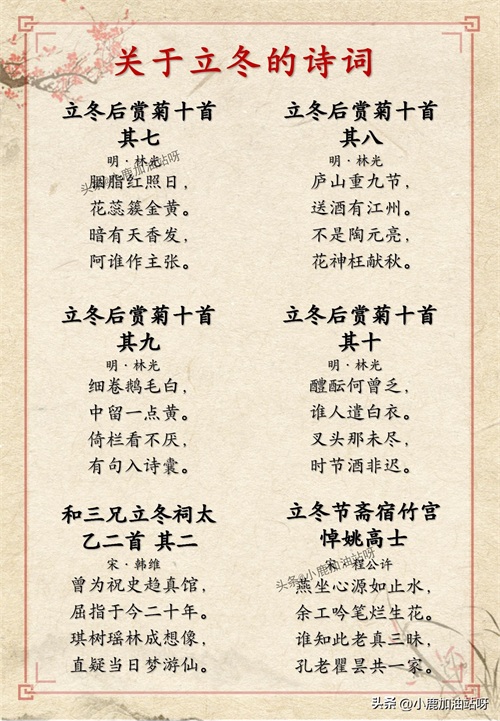 关于立冬的诗词
立冬后赏菊十首
其七
明·林光
胭脂红照日，
花蕊簇金黄。
暗有天香发，
阿谁作主张。
立冬后赏菊十首
其八
明·林光
庐山重九节，
送酒有江州。
不是陶元亮，
花神枉献秋。
立冬后赏菊十首
其九
明·林光
细卷鹅毛白，
中留一点黄。
倚栏看不厌，
有句入诗囊。
立冬后赏菊十首
其十
明·林光
醴酝何曾乏，
谁人遣白衣。
叉头那未尽，
时节酒非迟。
和三兄立冬祠太
乙二首 其二
宋·韩维
曾为祝史趋真馆，
屈指于今二十年。
琪树瑶林成想像，
直疑当日梦游仙。
立冬节斋宿竹宫
悼姚高士
宋·程公许
燕坐心源如止水，
余工吟笔烂生花。
谁知此老真三昧，
孔老瞿昙共一家。
头条@小鹿加油站呀
头条@小鹿加油站呀
头条@小鹿加油站呀